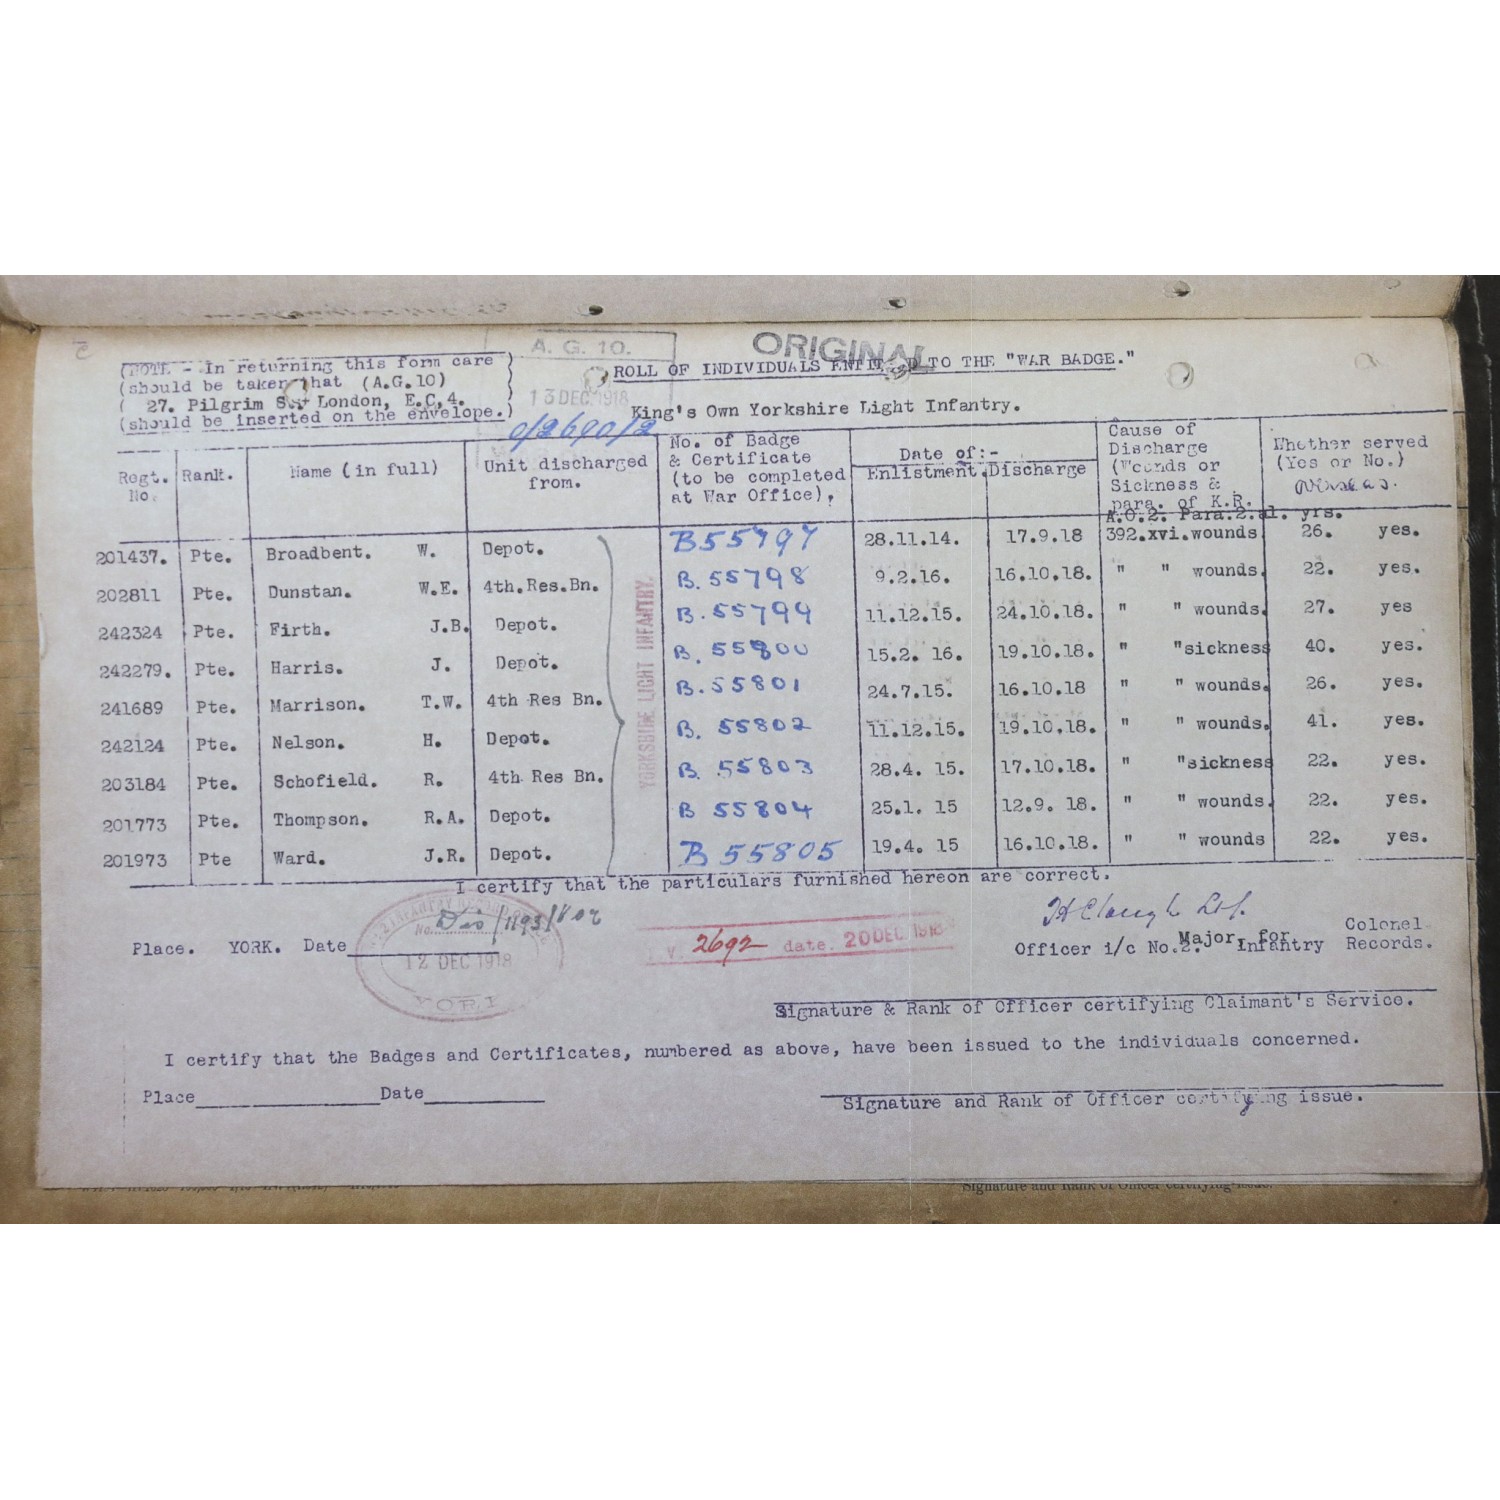 A. G. 10.
13 DEC. 1918
ORIGINAL
(NOTE - In returning this form care )
(should be taken that (A.G.10) )
( 27. Pilgrim St London, E.C,4. )
(should be inserted on the envelope.)
ROLL OF INDIVIDUALS ENTITLED TO THE "WAR BADGE."
King's Own Yorkshire Light Infantry.
0/2690/2
Regt. No. Rank. Name (in full) Unit discharged from. No. of Badge & Certificate (to be completed at War Office), Date of:- Enlistment. Discharge Cause of Discharge (Wounds or Sickness & para. of K.R. Whether served (Yes or No.) overseas.
A.O.2. Para.2.a1. yrs.
201437. Pte. Broadbent. W. Depot. B55797 28.11.14. 17.9.18 392.xvi.wounds 26. yes.
202811 Pte. Dunstan. W.E. 4th.Res.Bn. B.55798 9.2.16. 16.10.18. " " wounds. 22. yes.
242324 Pte. Firth. J.B. Depot. B.55799 11.12.15. 24.10.18. " " wounds. 27. yes
242279. Pte. Harris. J. Depot. B.55800 15.2. 16. 19.10.18. " "sickness 40. yes.
241689 Pte. Marrison. T.W. 4th Res Bn. B.55801 24.7.15. 16.10.18 " " wounds. 26. yes.
242124 Pte. Nelson. H. Depot. B. 55802 11.12.15. 19.10.18. " " wounds. 41. yes.
203184 Pte. Schofield. R. 4th Res Bn. B. 55803 28.4. 15. 17.10.18. " "sickness 22. yes.
201773 Pte. Thompson. R.A. Depot. B 55804 25.1. 15 12.9. 18. " " wounds. 22. yes.
201973 Pte Ward. J.R. Depot. B 55805 19.4. 15 16.10.18. " " wounds 22. yes.
YORKSHIRE LIGHT INFANTRY.
I certify that the particulars furnished hereon are correct.
No. Dis/1193/
12 DEC 1918
YORK
V. 2692 date. 20 DEC 1918
H Clough Lt.
Place. YORK. Date
Major, for Colonel
Officer i/c No.2. Infantry Records.
Signature & Rank of Officer certifying Claimant's Service.
I certify that the Badges and Certificates, numbered as above, have been issued to the individuals concerned.
Place Date
Signature and Rank of Officer certifying issue.
Signature and Rank of Officer certifying issue.